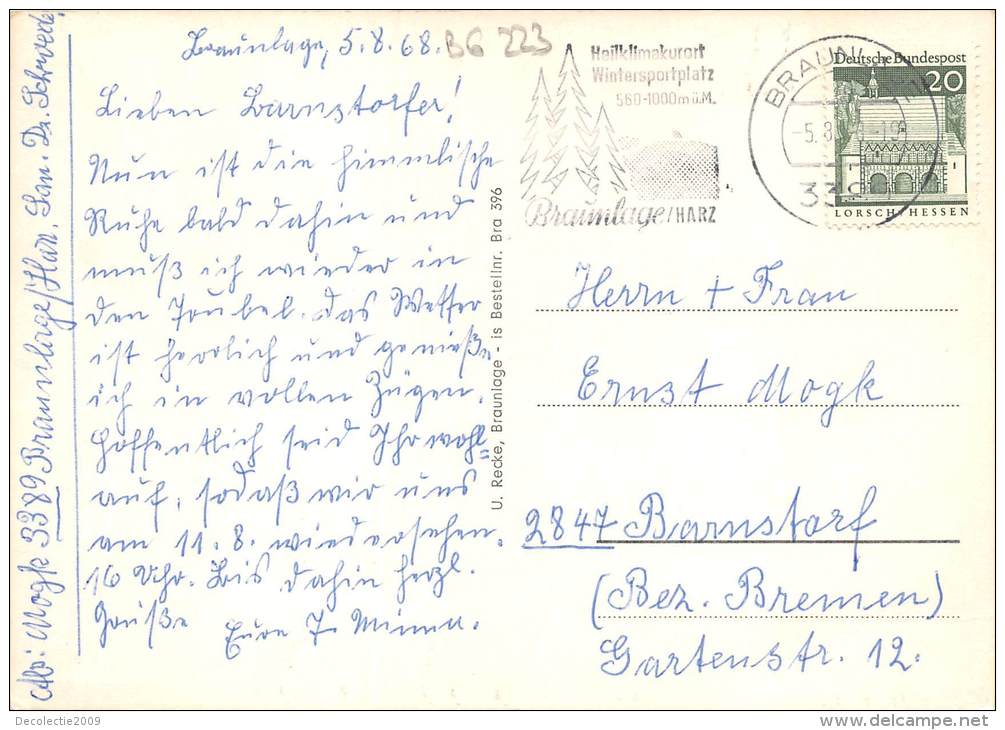 Braunlage, 5.8.68.
BG 223
Lieben Barnstorfer!
Nun ist die himmlische
Ruhe bald dahin und
muß ich wieder in
den Trubel. Das Wetter
ist herrlich und genieße
ich in vollen Zügen.
Hoffentlich seid Ihr wohl-
auf, sodaß wir uns
am 11.8. wiedersehen.
16 Uhr. Bis dahin herzl.
Grüße Eure T. Minna.
Abs: Mogk 3389 Braunlage/Harz. San. Dr. Schroeder
U. Recke, Braunlage - is Bestellnr. Bra 396
Heilklimakurort
Wintersportplatz
560-1000m ü.M.
Braunlage/HARZ
BRAUNL
-5.8. -19
Deutsche Bundespost
20
LORSCH/HESSEN
Herrn + Frau
Ernst Mogk
2847 Barnstorf
(Bez. Bremen)
Gartenstr. 12.
Decolectie2009
delcampe.net